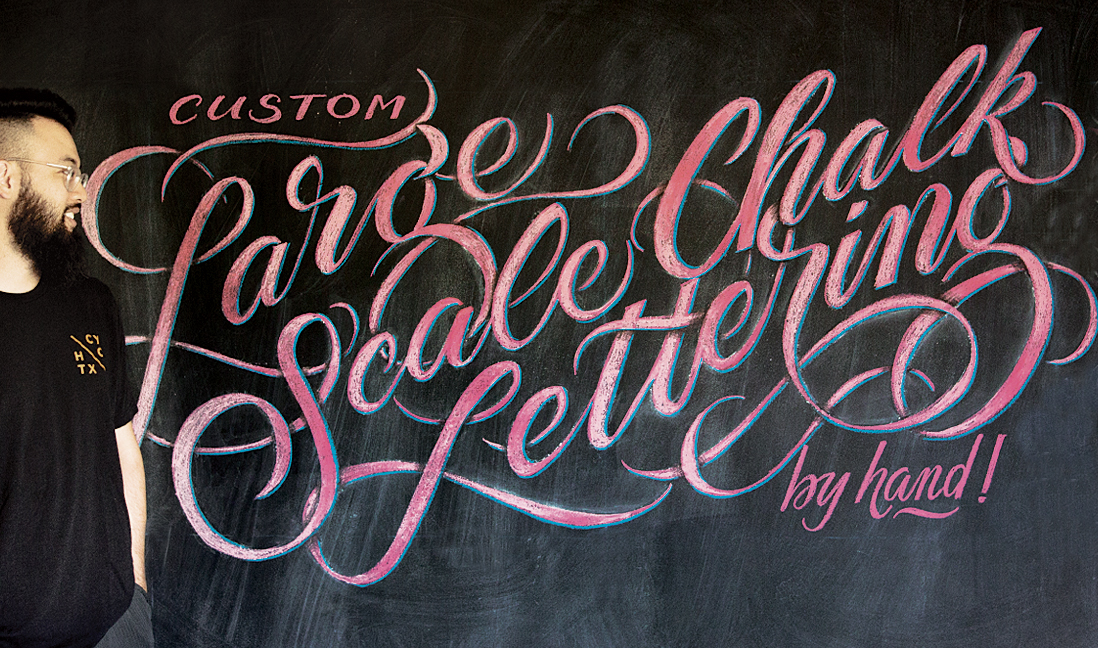 CUSTOM
Large Chalk
Scale Lettering
by hand!
CY
H C
TX